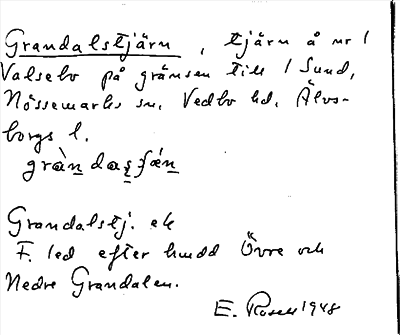 Grandalstjärn, tjärn å nr 1
Valsebo på gränsen till 1 Sund,
Nössemarks sn, Vedbo hd, Älvs-
borgs l.
gràn̲da̲ʂʃǽn̲
Grandalstj. ek
F. led efter hmdd Övre och
Nedre Grandalen.
E. Rosell 1948